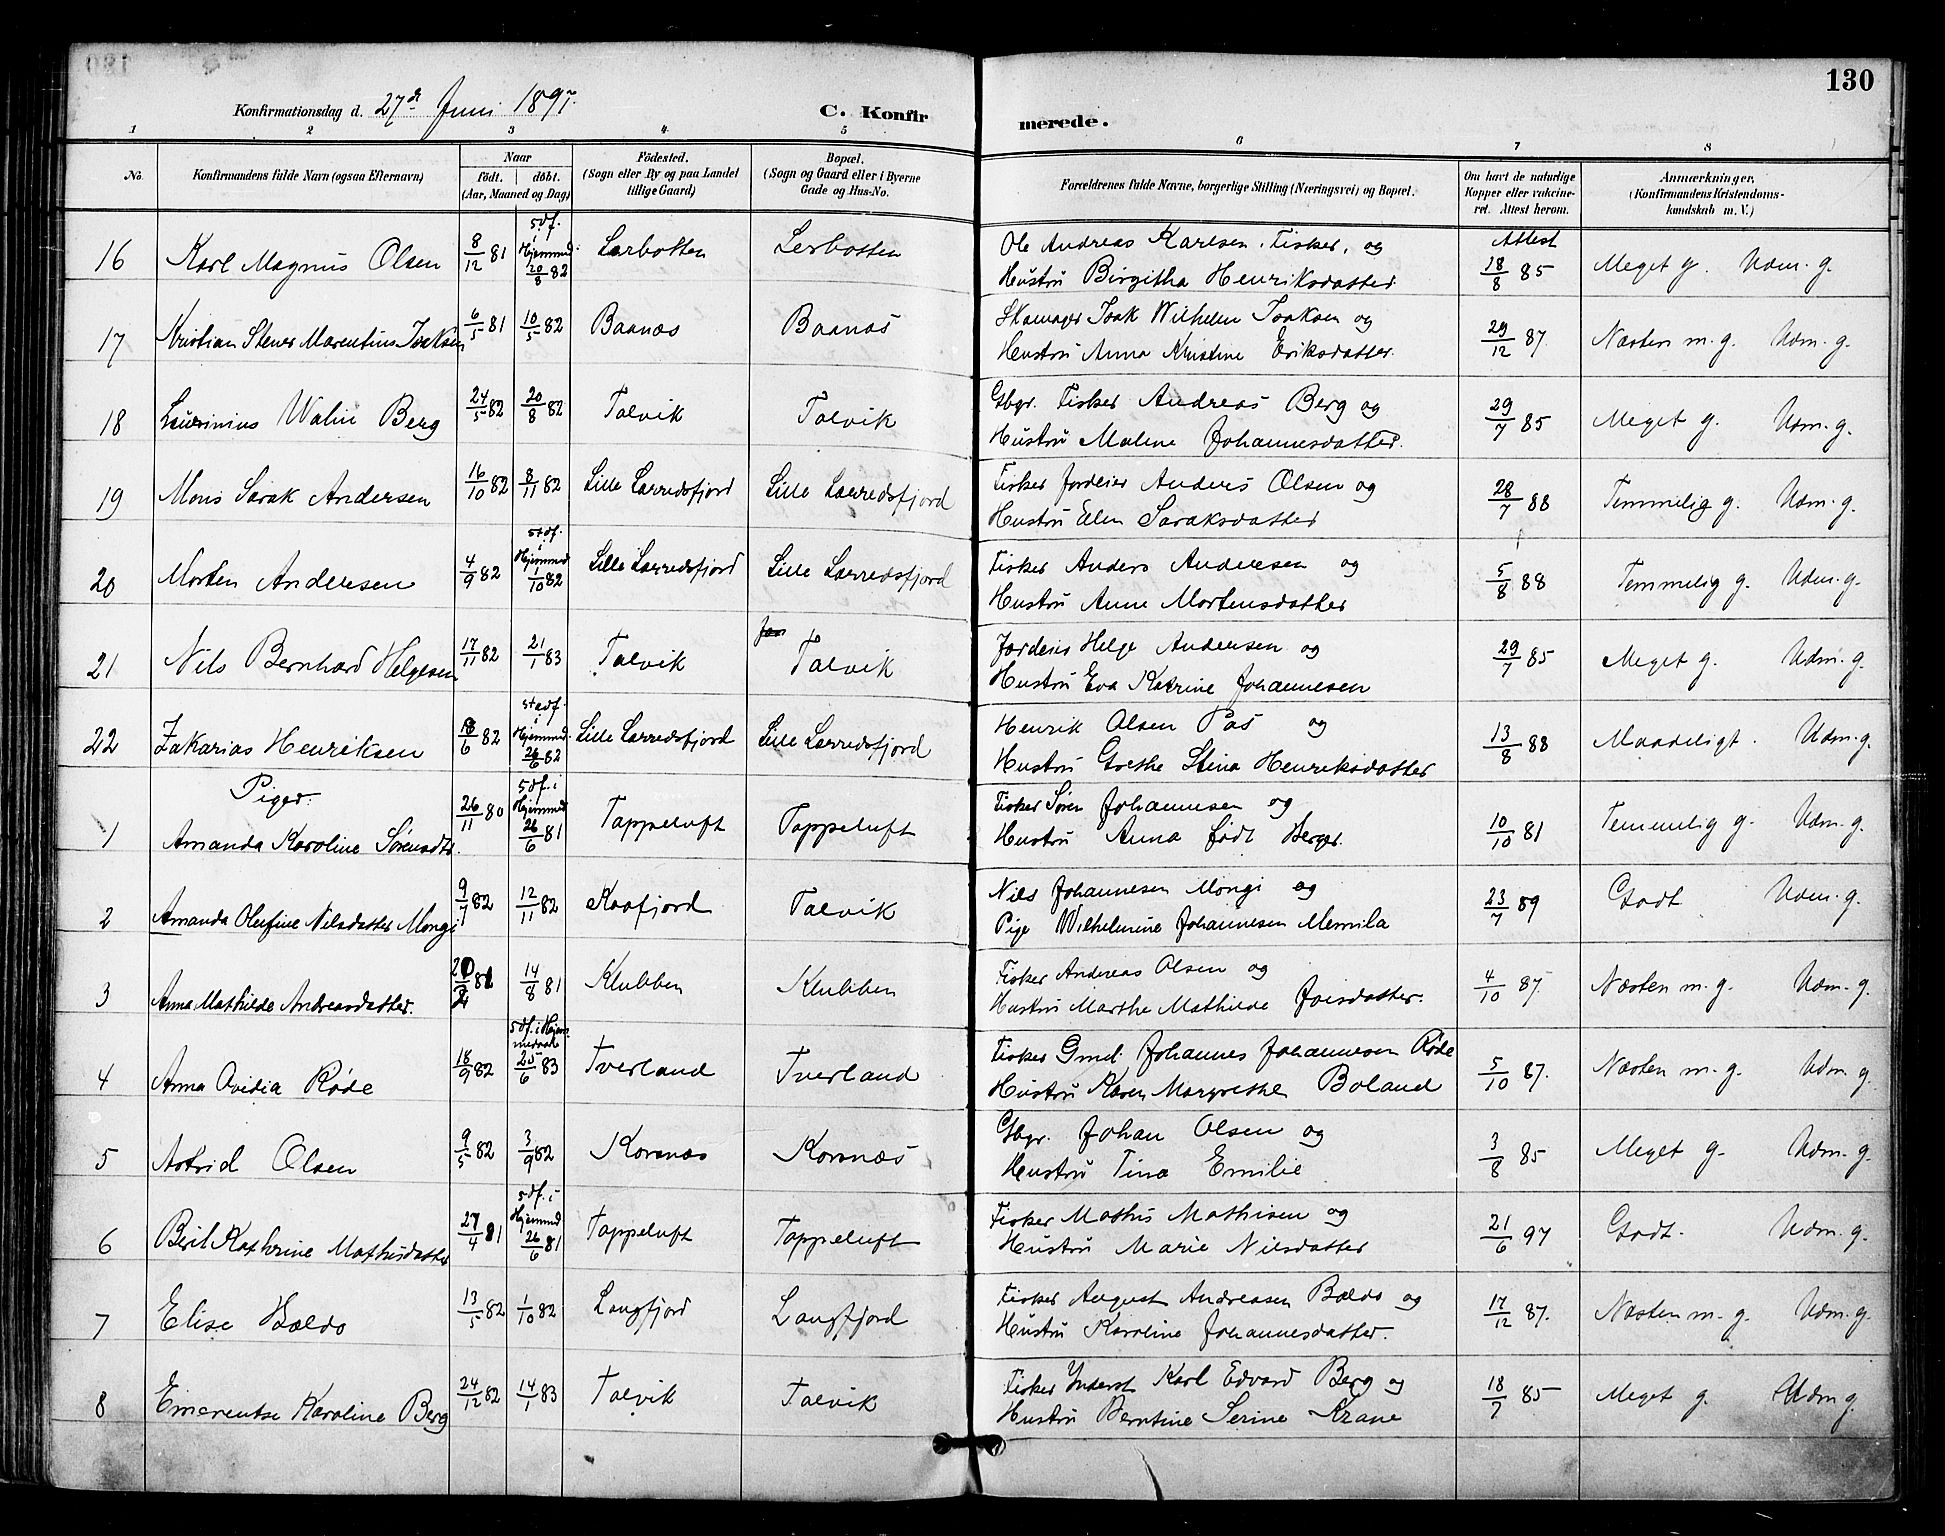 130
Konfirmationsdag d. 27de Juni 1897.
C. Konfirmerede.
1 2 3 4 5 6 7 8
No. Konfirmandens fulde Navn (ogsaa Efternavn) Naar født. døbt. (Aar, Maaned og Dag) Födested. (Sogn eller By og paa Landet tillige Gaard) Bopæl. (Sogn og Gaard eller i Byerne Gade og Hus-No. Forældrenes fulde Navne, borgerlige Stilling (Næringsvei) og Bopæl. Om havt de naturlige Kopper eller vaccineret. Attest herom. Anmærkninger, (Konfirmandens Kristendomskundskab m. V.)
16 Karl Magnus Olsen 8/12 81 stdf. i Hjemmed. 20/8 82 Lerbotten Lerbotten Ole Andreas Karlsen. Fisker. og Hustru Birgitha Henriksdatter Attest 18/8 85 Meget g. Udm. g.
17 Kristian Stener Marentius Isaksen 6/5 81 10/5 82 Baanæs Baanæs Skomager Isak Wilhelm Isaksen og Hustru Anna Kristine Eriksdatter. 29/12 87. Næsten m. g. Udm. g.
18 Laurinius Walin Berg 24/5 82 20/8 82 Talvik Talvik Gbgr. Fisker Andreas Berg og Hustru Maline Johannesdatter. 29/7 85 Meget g. Udm. g.
19 Mons Sarak Andersen 16/10 82 8/11 82 Lille Lærredsfjord Lille Lærredsfjord Fisker Jordeier Anders Olsen og Hustru Elen Saraksdatter 28/7 88 Temmelig g. Udm. g.
20 Morten Andersen 4/9 82 stdf. i Hjemmed 1/10 82 Lille Lærredsfjord Lille Lærredsfjord Fisker Anders Andersen og Hustru Anne Mortensdatter 5/8 88 Temmelig g. Udm. g.
21 Nils Bernhard Helgesen 17/11 82 21/1 83 Talvik Talvik Jordeier Helge Andersen og Hustru Eva Katrine Johannesen 29/7 85 Meget g. Udm. g.
22 Zakarias Henriksen 82 stadf. i Hjemmed. 82 Lille Lærredsfjord Lille Lærredsfjord Henrik Olsen Pas og Hustru Grethe Stina Henriksdatter 13/8 88 Maadeligt. Udm. g.
Piger.
1 Amanda Karoline Sørensdtr. 26/11 80 stdf. i Hjemmed 26/6 81 Tappeluft Tappeluft Fisker Søren Johannesen og Hustru Anna født Berger. 10/10 81 Temmelig g. Udm. g.
2 Amanda Olufine Nilsdatter Mongi 9/7 82 12/11 82 Kaafjord Talvik Nils Johannesen Mongi og Pige Wilhelmine Johannesen Memila 23/7 89 Godt Udm. g.
3 Anna Mathilde Andreasdatter. 81 14/8 81 Klubben Klubben Fisker Andreas Olsen og Hustru Marthe Mathilde Joisdatter. 4/10 87. Næsten m. g. Udm. g.
4 Anna Ovidia Røde 18/9 82 stdf. i Hjemmedaab 25/6 83 Tverland Tverland Fisker Gmd. Johannes Johannesen Røde Hustru Karen Margrethe Boland 5/10 87. Næsten m. g. Udm. g.
5 Astrid Olsen 9/5 82 3/9 82 Korsnæs Korsnæs Gbgr. Johan Olsen og Hustru Tina Emilie 3/8 85 Meget g. Udm. g.
6 Beril Kathrine Mathisdatter 27/4 81 stdf. i Hjemmed 26/6 81 Tappeluft Tappeluft Fisker Mathis Mathisen og Hustru Marie Nilsdatter 21/6 97 Godt. Udm. g.
7 Elise Bældo 13/5 82 1/10 82 Langfjord Langfjord Fisker August Andreasen Bældo og Hustru Karoline Johannesdatter. 17/12 87. Næsten m. g. Udm. g.
8 Emerentse Karoline Berg 24/12 82 14/1 83 Talvik Talvik Fisker Inderst Karl Edvard Berg og Hustru Berntine Serine Krane 18/7 85 Meget g. Udm g.